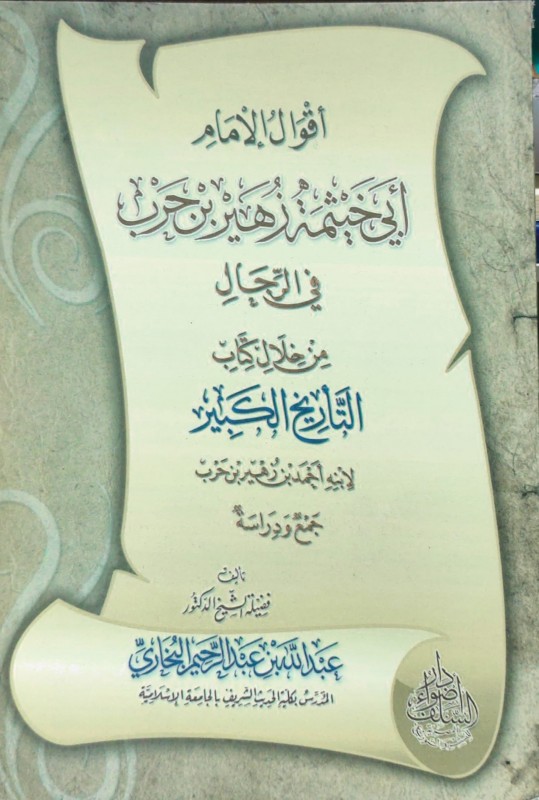 أقوال الإمام
أبي خيثمة زهير بن حرب
في الرجال
من خلال كتاب
التأريخ الكبير
لابنه أحمد بن زهير بن حرب
جمع ودراسة
تأليف
فضيلة الشيخ الدكتور
عبدالله بن عبدالرحيم البخاري
المدرس بكلية الحديث الشريف بالجامعة الإسلامية
دار
أضواء
السلف